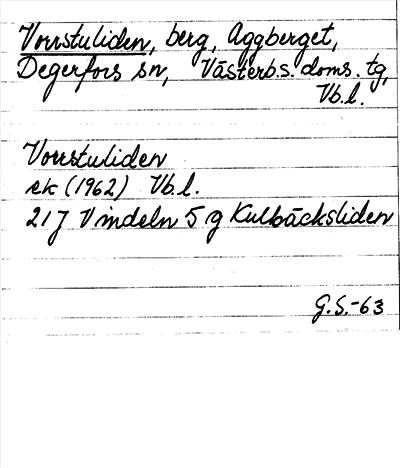 Vorrstuliden, berg, Aggberget,
Degerfors sn, Västerb.s. doms. tg,
Vb.l.
Vorrstuliden
ek (1962) Vb.l.
21J Vindeln 5 g Kulbäcksliden
G.S.-63